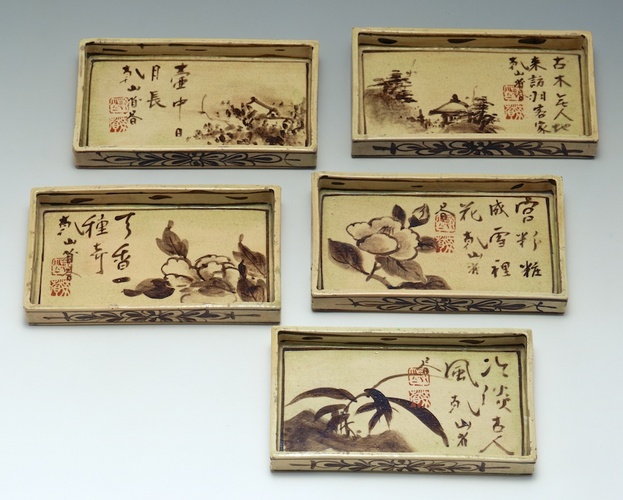 壷中日
月長
乾山省書
古木無人地
来訪羽客家
乾山省書
天香一
種奇
乾山省書
宮粉粧
成雪裡
花 乾山省
冷淡古人
風 乾山省